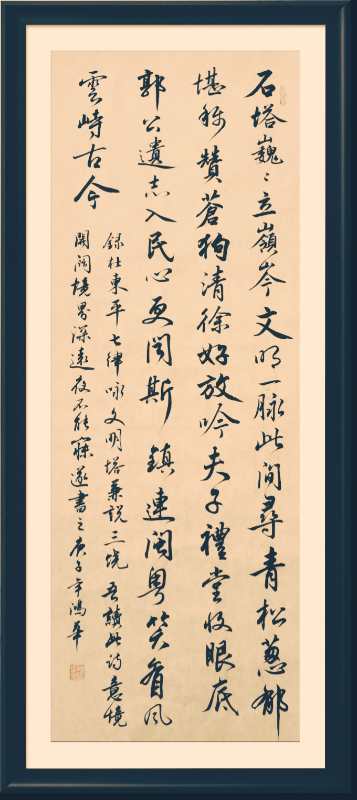 石塔巍々立嶺岑文明一脉此间尋青松蔥郁
堪称贊蒼狗清徐好放吟夫子禮堂收眼底
郭公遺志入民心更闻斯鎮連閩粤笑看风
雲峙古今
録杜東平七律咏文明塔兼説三饶吾讀此诗意境
開阔境界深遠夜不能寐遂書之庚子年鴻華